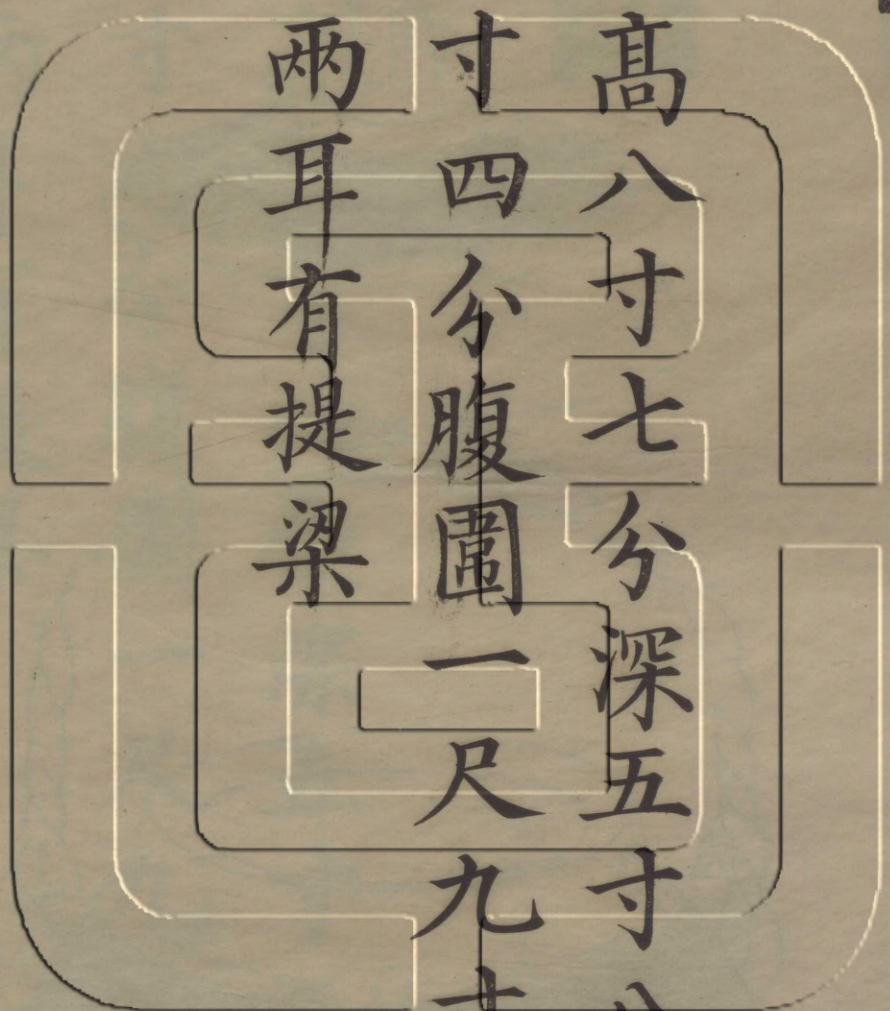 髙八寸七分深五寸
寸四分腹圍一尺九
兩耳有提梁